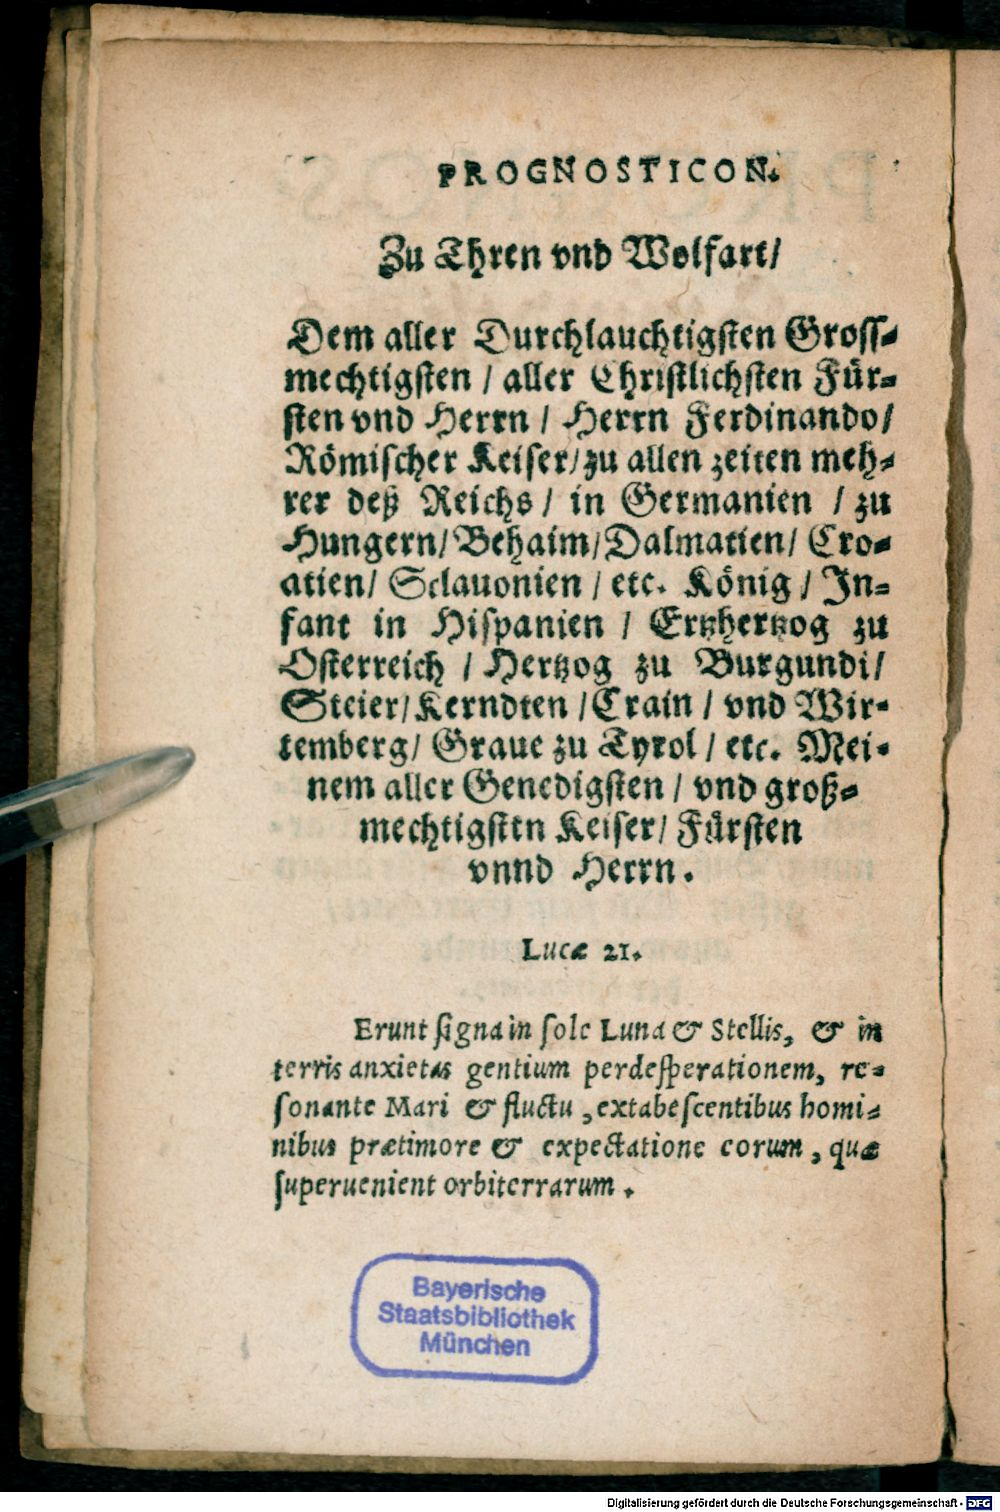 PROGNOSTICON.
Zu Ehren vnd Wolfart/
Dem aller Durchlauchtigsten Gross-
mechtigsten / aller Christlichsten Für-
sten vnd Herrn / Herrn Ferdinando/
Römischer Keiser/ zu allen zeiten meh-
rer deß Reichs / in Germanien / zu
Hungern/ Behaim/ Dalmatien/ Cro-
atien/ Sclauonien / etc. König / In-
fant in Hispanien / Ertzhertzog zu
Osterreich / Hertzog zu Burgundi/
Steier/ Kerndten / Crain / vnd Wir-
temberg/ Graue zu Tyrol / etc. Mei-
nem aller Genedigsten / vnd groß-
mechtigsten Keiser/ Fürsten
vnnd Herrn.
Lucæ 21.
Erunt signa in sole Luna & Stellis, & in
terris anxietas gentium perdesperationem, re-
sonante Mari & fluctu, extabescentibus homi-
nibus prætimore & expectatione eorum, quæ
superuenient orbiterrarum.
Bayerische
Staatsbibliothek
München
Digitalisierung gefördert durch die Deutsche Forschungsgemeinschaft - DFG